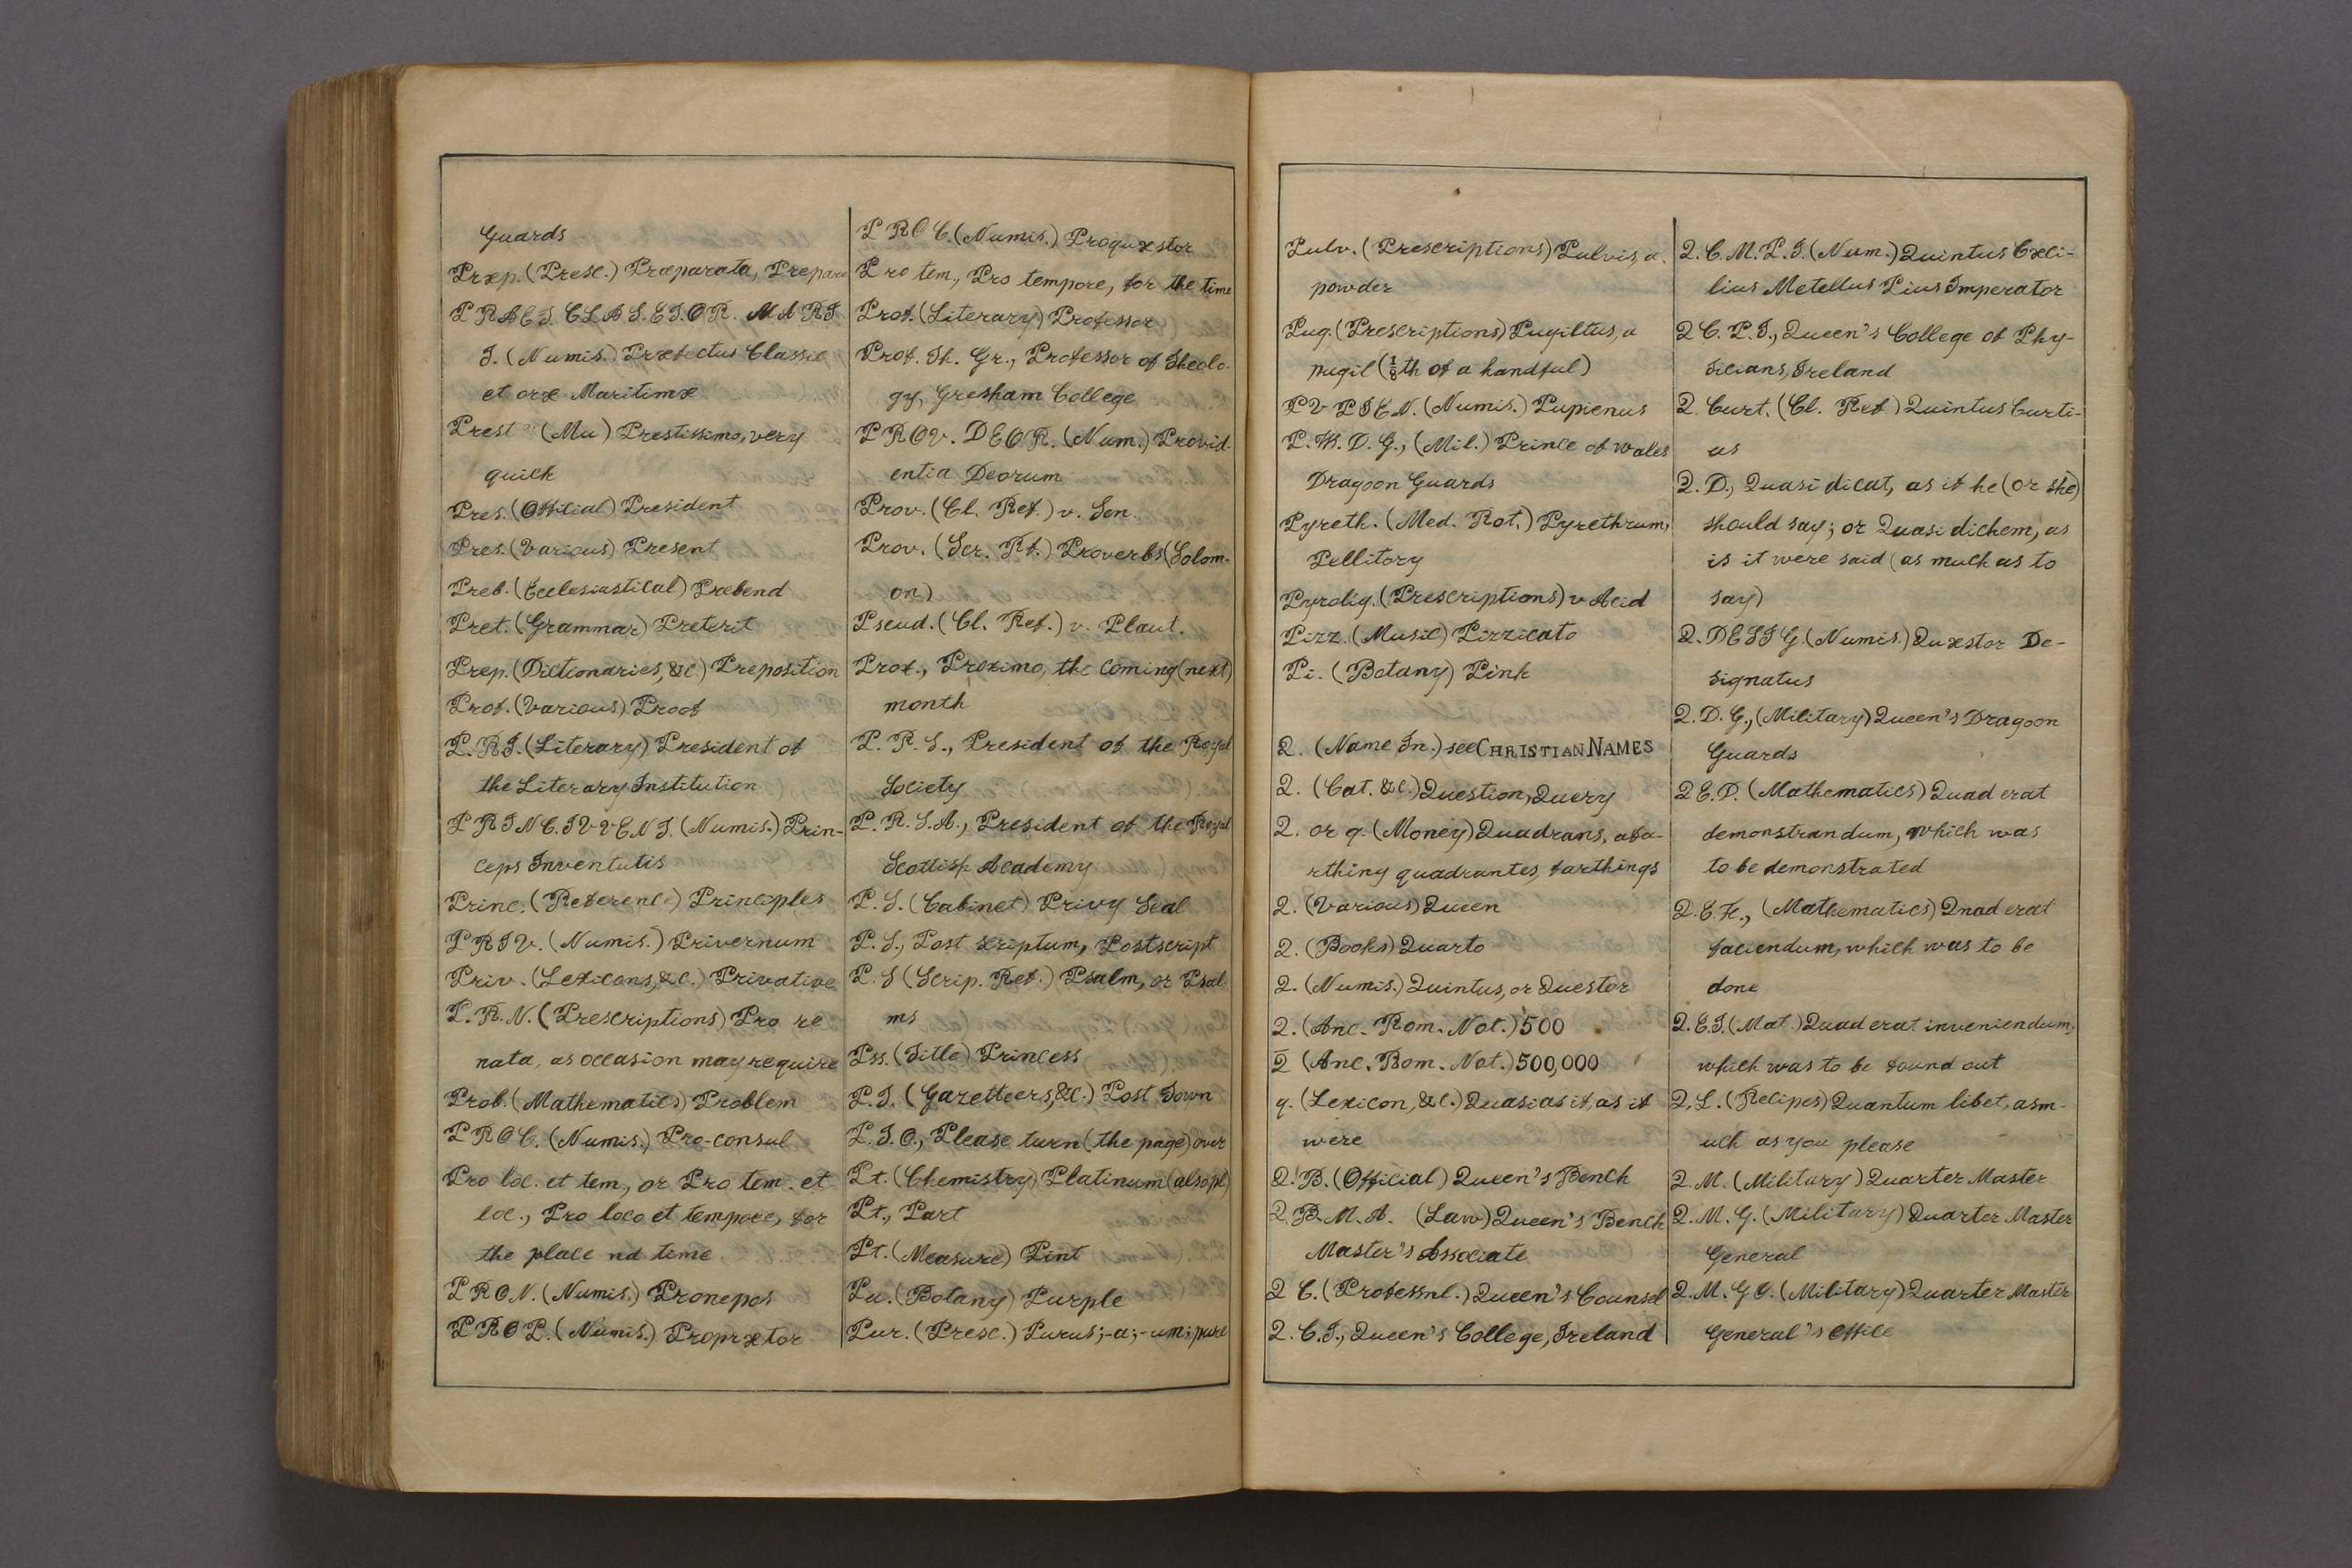 Guards
Præp. (Presc.) Præparata, Prepare
PRAEJ. CLAS. ET. OR. MARI
T. (Numis.) Præfectus Classie
et oræ Maritimæ
Prest (Mu) Prestissimo, very
quick
Pres. (Official) President
Pres. (Various) Present
Preb. (Ecclesiastical) Prebend
Pret. (Grammar) Preterit
Prep. (Dictionaries, &c.) Preposition
Prof. (Various) Proof
P.R.I. (Literary) President of
the Literary Institution
PRINC. IVVENT. (Numis.) Prin-
ceps Inventutis
Princ. (Reference) Principles
PRIV. (Numis.) Privernum
Priv. (Lexicons, &c.) Privative
P.R.N. (Prescriptions) Pro re
nata, as occasion may require
Prob. (Mathematics) Problem
PROC. (Numis.) Pro-consul
Pro loc. et tem, or Pro tem. et
loc., Pro loco et tempore, for
the place nd time
PRON. (Numis.) Pronepos
PROP. (Numis.) Proprætor
PROC. (Numis.) Proquæstor
Pro tem., Pro tempore, for the time
Prof. (Literary) Professor
Prof. Th. Gr., Professor of Theolo-
gy, Gresham College
PROV. DEOR. (Num.) Provid-
entia Deorum
Prov. (Cl. Ref.) v. Sen.
Prov. (Scr. Rf.) Proverbs (Solom-
on)
Pseud. (Cl. Ref.) v. Plaut.
Prox., Proximo, the coming (next)
month
P.R.S., President of the Royal
Society
P.R.S.A., President of the Royal
Scottish Academy
P.S. (Cabinet) Privy Seal
P.S., Post scriptum, Postscript
P.S (Scrip. Ref.) Psalm, or Psal
ms
Pss. (Title) Princess
P.T. (Gazetteers, &c.) Post Town
P.T.O., Please turn (the page) over
Pt. (Chemistry) Platinum (also pl)
Pt., Part
Pt. (Measure) Pint
Pu. (Botany) Purple
Pur. (Presc.) Purus; -a; -um; pure
Pulv. (Prescriptions) Pulvis, a
powder
Pug. (Prescriptions) Pugiltus, a
pugil (⅛th of a handful)
PV PIEN. (Numis.) Pupienus
P.W.D.G., (Mil.) Prince of Wales
Dragoon Guards
Pyreth. (Med. Rot.) Pyrethrum,
Pellitory
Pyrolig. (Prescriptions) v Acid
Pizz. (Music) Pizzicato
Pi. (Botany) Pink
Q. (Name In.) see CHRISTIAN NAMES
Q. (Cat. &c.) Question, Query
Q. or q. (Money) Quadrans, a fa-
rthing quadrantes, farthings
Q. (Various) Queen
Q. (Books) Quarto
Q. (Numis.) Quintus, or Questor
Q. (Anc. Rom. Not.) 500
Q̅ (Anc. Rom. Not.) 500,000
q. (Lexicon, &c.) Quasi as it, as it
were
Q.B. (Official) Queen's Bench
Q.B.M.A. (Law) Queen's Bench
Master's Associate
Q C. (Professnl.) Queen's Counsel
Q.C.I., Queen's College, Ireland
Q.C.M.P.I. (Num.) Quintus Cæci-
lius Metellus Pius Imperator
Q C.P.I., Queen's College of Phy-
sicians, Ireland
Q Curt. (Cl. Ref.) Quintus Curti-
us
Q.D., Quasi dicat, as if he (or she)
should say; or Quasi dichem, as
is it were said (as much as to
say)
Q.DESIG. (Numis.) Quæstor De-
signatus
Q.D.G., (Military) Queen's Dragoon
Guards
Q E.D. (Mathematics) Quad erat
demonstrandum, which was
to be demonstrated
Q.E.F., (Mathematics) Qnad erat
faciendum, which was to be
done
Q.E.I. (Mat.) Quad erat inveniendum,
which was to be found out
Q.L. (Recipes) Quantum libet, asm-
uch as you please
Q.M. (Military) Quarter Master
Q.M.G. (Military) Quarter Master
General
Q.M.G O. (Military) Quarter Master
General's Office